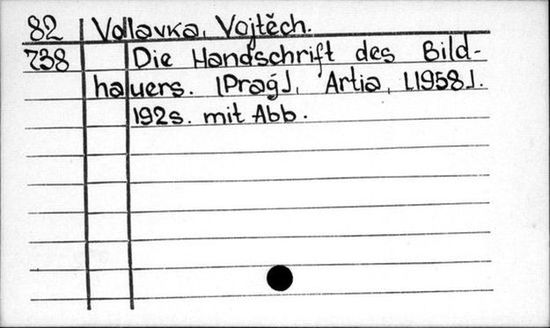 82 Volavka, Vojtěch.
738 Die Handschrift des Bild-
hauers. [Prag], Artia, [1958].
192s. mit Abb.